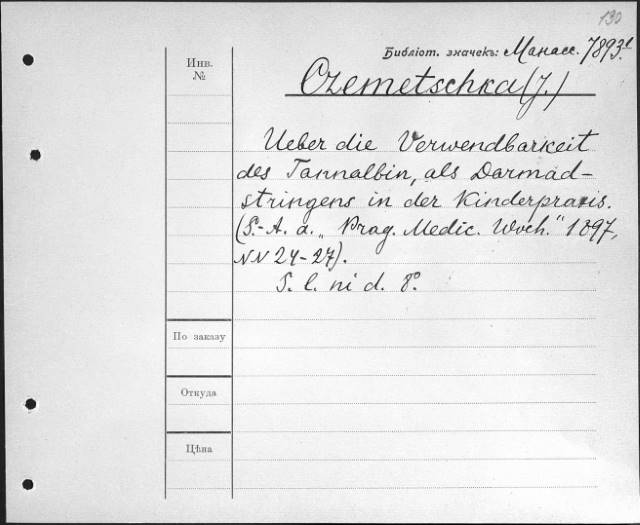 130
Библіот. значекъ: Манасс. 7893.
Инв.
№
Czemetschka (J.)
Ueber die Verwendbarkeit
des Tannalbin, als Darmad-
stringens in der Kinderpraxis.
(S.-A. a. „Prag. Medic. Woch." 1897,
NN 24-27).
S. l. ni d. 8º.
По заказу
Откуда
Цѣна